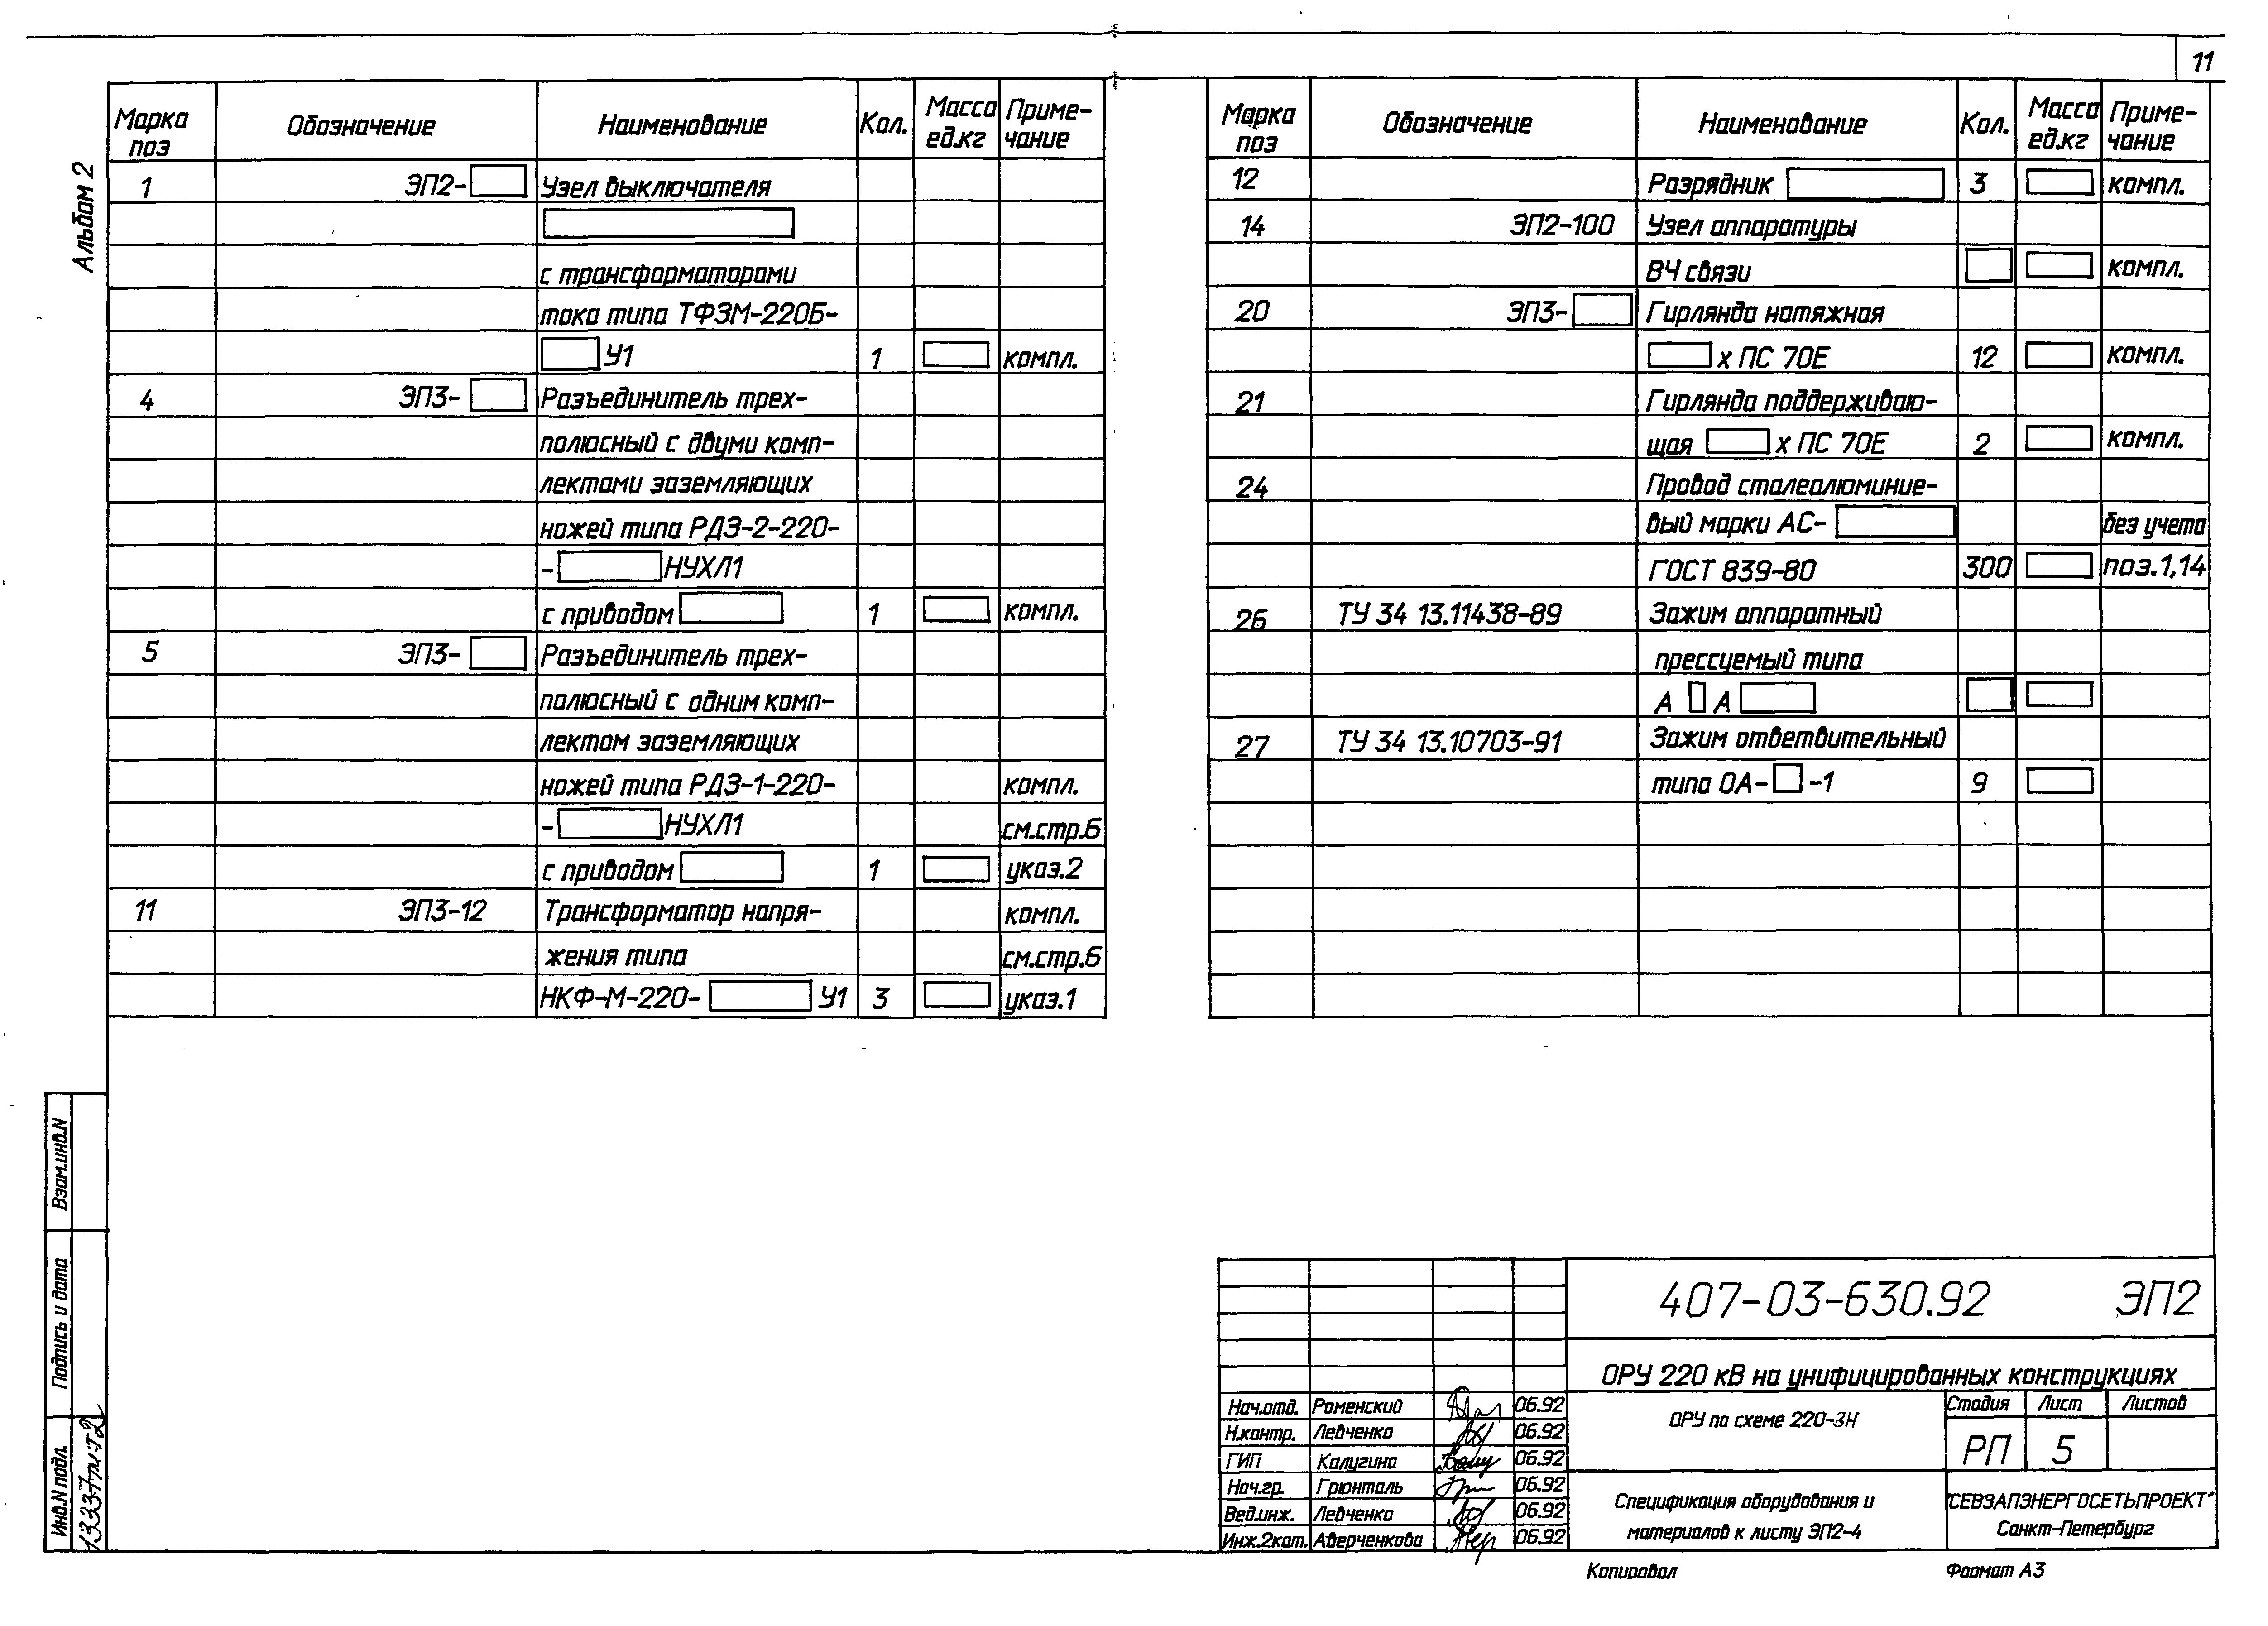 11
Альбом 2
Марка поз Обозначение Наименование Кол. Масса ед.кг Приме-чание
1 ЭП2- Узел выключателя
с трансформаторами
тока типа ТФЗМ-220Б-
У1 1 компл.
4 ЭП3- Разъединитель трех-
полюсный с двуми комп-
лектами заземляющих
ножей типа РДЗ-2-220-
- НУХЛ1
с приводом 1 компл.
5 ЭП3- Разъединитель трех-
полюсный с одним комп-
лектом заземляющих
ножей типа РДЗ-1-220- компл.
- НУХЛ1 см.стр.6
с приводом 1 указ.2
11 ЭП3-12 Трансформатор напря- компл.
жения типа см.стр.6
НКФ-М-220- У1 3 указ.1
Марка поз Обозначение Наименование Кол. Масса ед.кг Приме-чание
12 Разрядник 3 компл.
14 ЭП2-100 Узел аппаратуры
ВЧ связи компл.
20 ЭП3- Гирлянда натяжная
х ПС 70Е 12 компл.
21 Гирлянда поддерживаю-
щая х ПС 70Е 2 компл.
24 Провод сталеалюминие-
вый марки АС- без учета
ГОСТ 839-80 300 поз.1,14
26 ТУ 34 13.11438-89 Зажим аппаратный
прессуемый типа
А А
27 ТУ 34 13.10703-91 Зажим ответвительный
типа ОА- -1 9
Взам.инв.N
Подпись и дата
Инв.N подл.
13337тм-т2
407-03-630.92 ЭП2
ОРУ 220 кВ на унифицированных конструкциях
Нач.отд. Роменский 06.92
Н.контр. Левченко 06.92
ГИП Калугина 06.92
Нач.гр. Грюнталь 06.92
Вед.инж. Левченко 06.92
Инж.2кат. Аверченкова 06.92
ОРУ по схеме 220-3Н
Стадия Лист Листов
РП 5
Спецификация оборудования и
материалов к листу ЭП2-4
"СЕВЗАПЭНЕРГОСЕТЬПРОЕКТ"
Санкт-Петербург
Копировал Формат А3